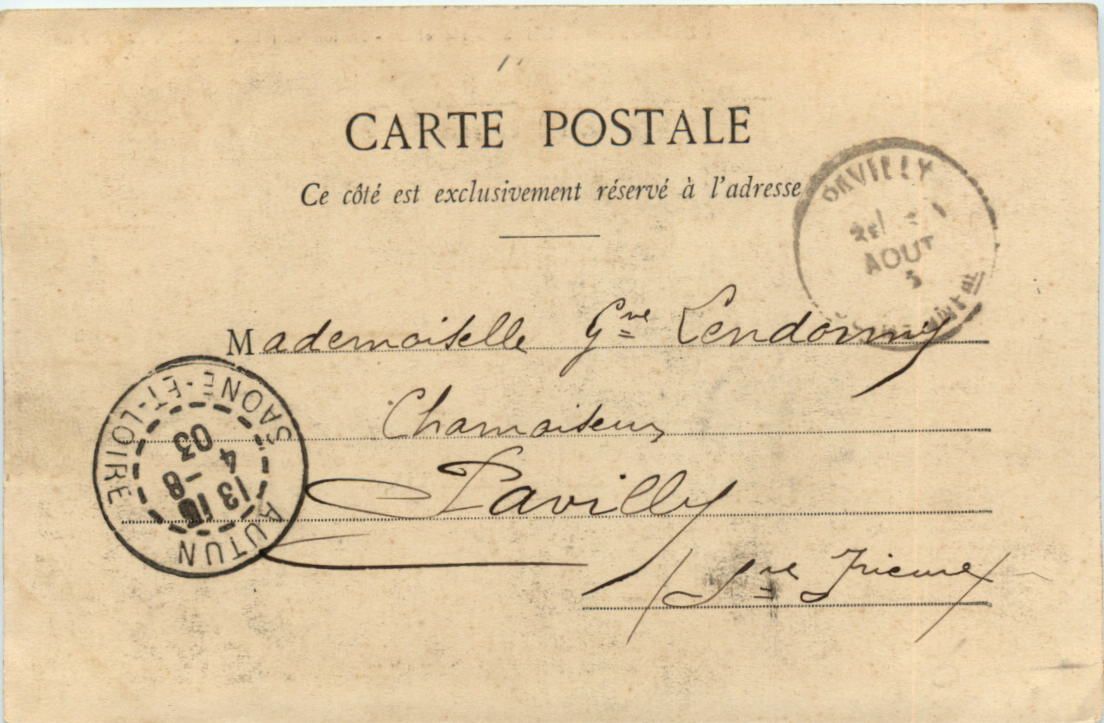 CARTE POSTALE
Ce côté est exclusivement réservé à l'adresse
PAVILLY
AOUT
3
Mademoiselle Gve Lendormy
Chamoiseur
Pavilly
Sne Inieure
AUTUN
SAONE-ET-LOIRE
13
4 - 8
03